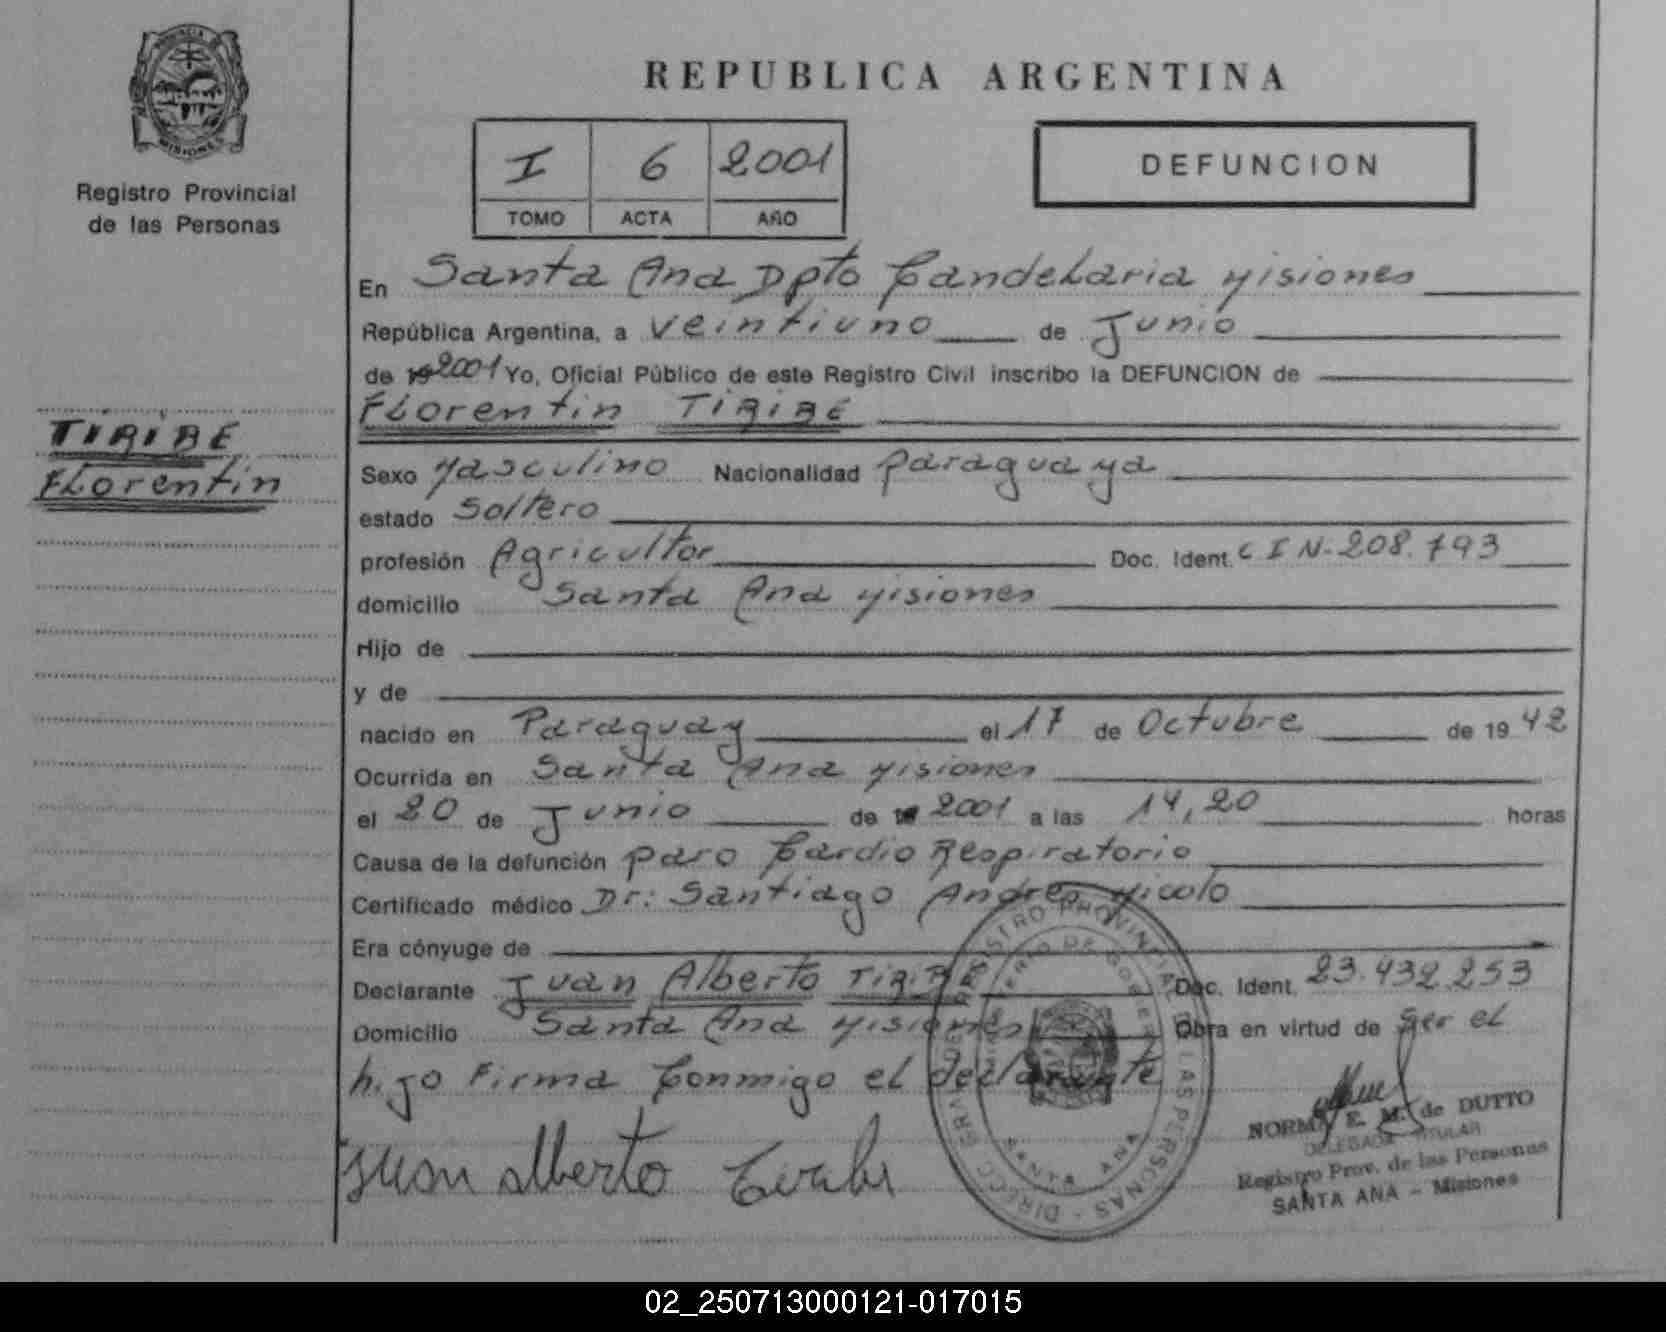 PROVINCIA DE
MISIONES
Registro Provincial
de las Personas
REPUBLICA ARGENTINA
I 6 2001
TOMO ACTA AÑO
DEFUNCION
En Santa Ana Dpto Candelaria Misiones
República Argentina, a veintiuno de Junio
de 2001 Yo, Oficial Público de este Registro Civil inscribo la DEFUNCION de
Florentin TIRIBE
TIRIBE
Florentin
Sexo Masculino Nacionalidad paraguaya
estado Soltero
profesión Agricultor Doc. Ident. C I N-208.793
domicilio Santa Ana Misiones
Hijo de
y de
nacido en Paraguay el 17 de Octubre de 19 42
Ocurrida en Santa Ana Misiones
el 20 de Junio de 2001 a las 14,20 horas
Causa de la defunción paro Cardio Respiratorio
Certificado médico Dr: Santiago Andres Micolo
Era cónyuge de
Declarante Juan Alberto Doc. Ident. 23.432.253
Domicilio Santa Ana Misiones Obra en virtud de Ser el
hijo Firma Conmigo el declarante
Juan Alberto
REGISTRO PROVINCIAL DE LAS PERSONAS - DIRECC GRAL DE
MINISTERIO DE GOBIERNO
SANTA ANA
NORMA E. M. de DUTTO
DELEGADA TITULAR
Registro Prov. de las Personas
SANTA ANA - Misiones
02_250713000121-017015